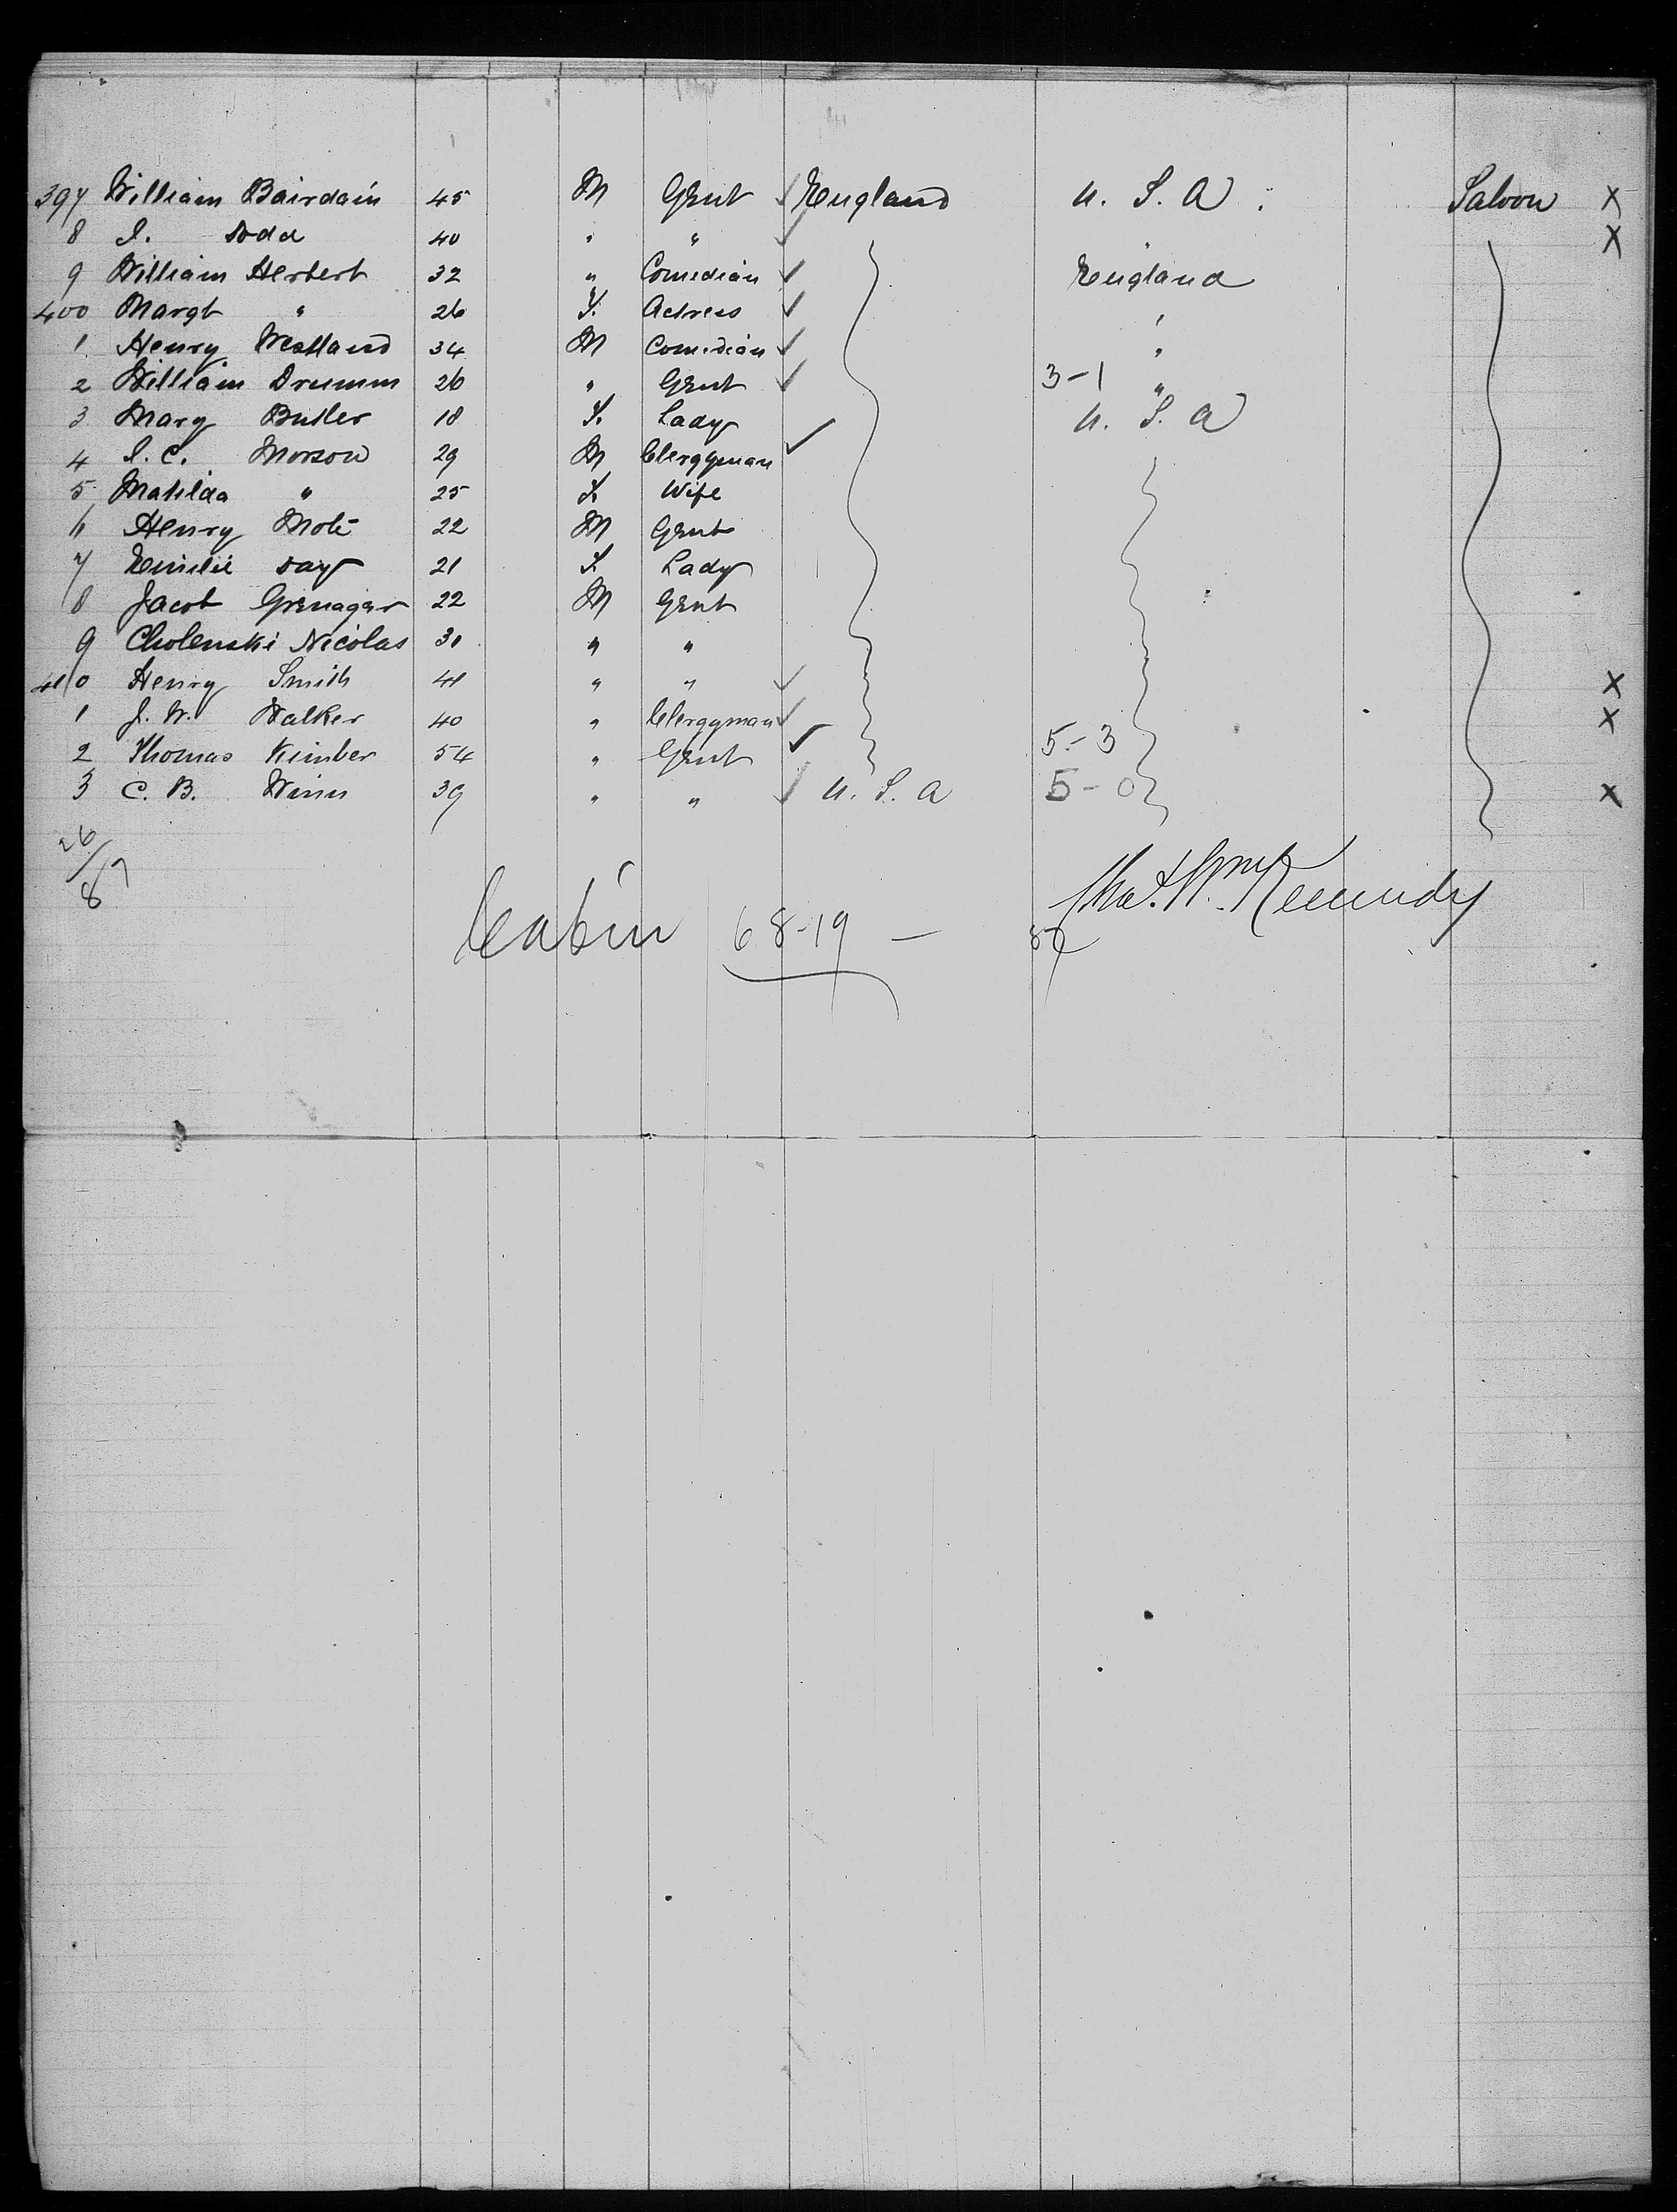 397 William Bairdain 45 M Gent England U. S. A. Saloon X
8 I. Dodd 40 " " X
9 William Herbert 32 " Comedian England
400 Margt " 26 F. Actress "
1 Henry Westland 34 M Comedian "
2 William Drumm 26 " Gent 3-1 "
3 Mary Butler 18 F. Lady U. S. A
4 I. C. Morson 29 M Clergyman
5 Matilda " 25 F. Wife
6 Henry Mote 22 M Gent
7 Emilie Day 21 F. Lady
8 Jacob 22 M Gent
9 Cholenski Nicolas 30 " "
410 Henry Smith 41 " " X
1 J. W. Walker 40 " Clergyman X
2 Thomas Kimber 54 " Gent 5-3
3 C. B. Winn 39 " " U. S. A 5-0 X
26/87
Kennedy
Cabin 68-19 — 87